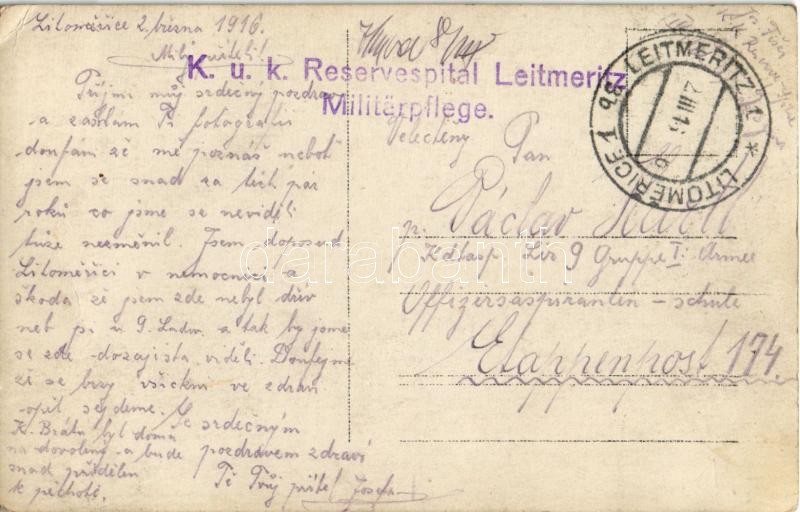 Litoměřice 2. března 1916.
Milý příteli!
Přijmi můj srdečný pozdrav
a zasílám Ti fotografii
doufám že mě poznáš neboť
jsem se snad za těch pár
roků co jsme se neviděli
tuze nezměnil. Jsem doposud
Litoměřici v nemocnici a
škoda že jsem zde nebyl dřív
neb js u 9. Ladw. a tak by jsme
se zde dozajista viděli. Doufejme
že se brzy všickni ve zdraví
opět sejdeme. Se srdečným
K. Brátů byl doma
na dovolený a bude pozdravem zdraví
snad přidělen Tě Tvůj přítel Josef
k pěchotě.
K. u. k. Reservespital Leitmeritz
Militärpflege.
LEITMERITZ 1
LITOMĚŘICE 1
2.III.16
Velectěný Pan
p. Václav
9 Gruppe I. Armee
Offizersaspiranten-schule
Etappenpost 174.
darabanth